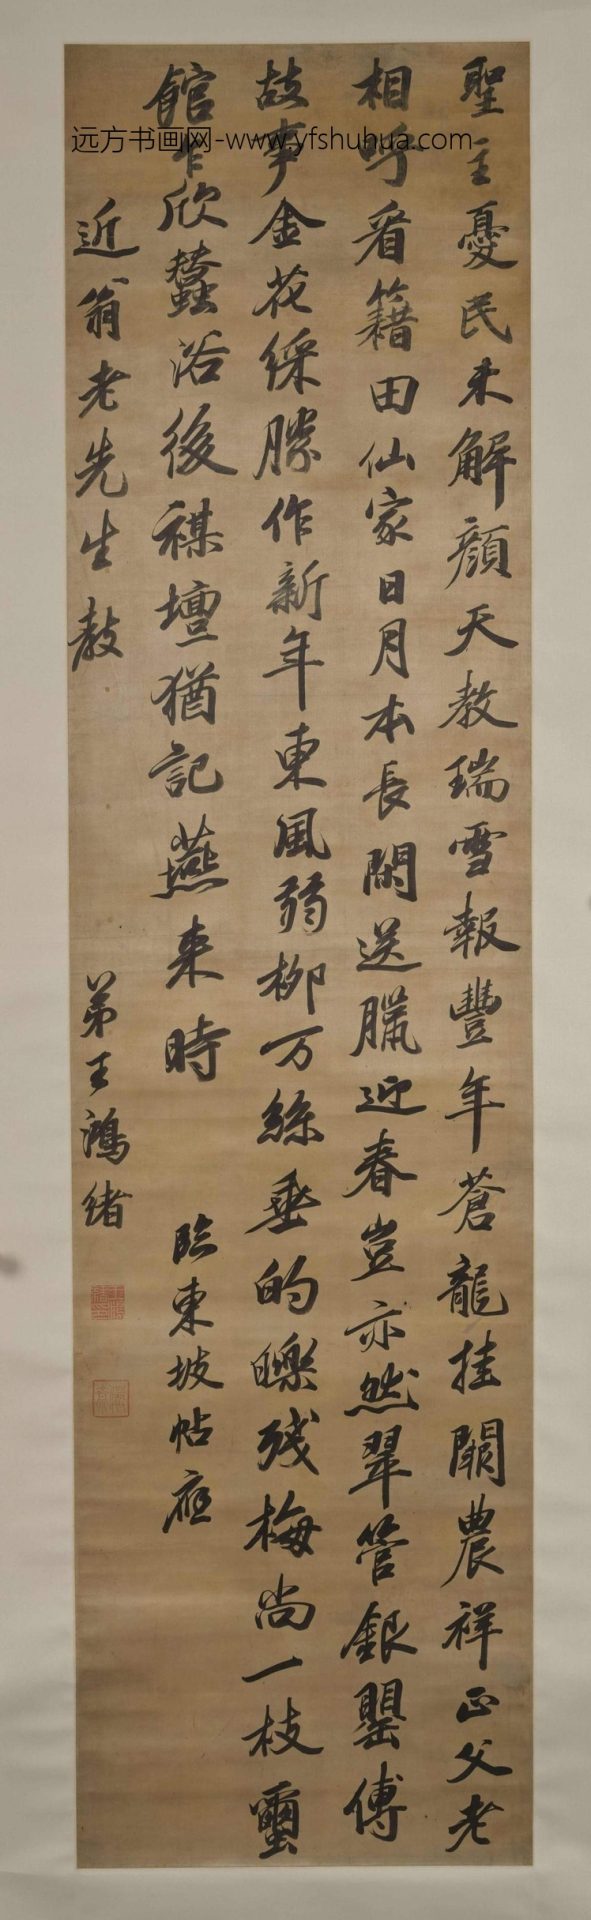 聖主憂民未解顏天教瑞雪報豐年蒼龍挂闕農祥正父老
相呼看籍田仙家日月本長閑送臘迎春豈亦然翠管銀罌傳
故事金花綵勝作新年東風弱柳万絲垂的皪殘梅尚一枝蠒
館乍欣蠶浴後禖壇猶記燕来時 臨東坡帖應
近翁老先生教 弟王鴻緒
远方书画网-www.yfshuhua.com